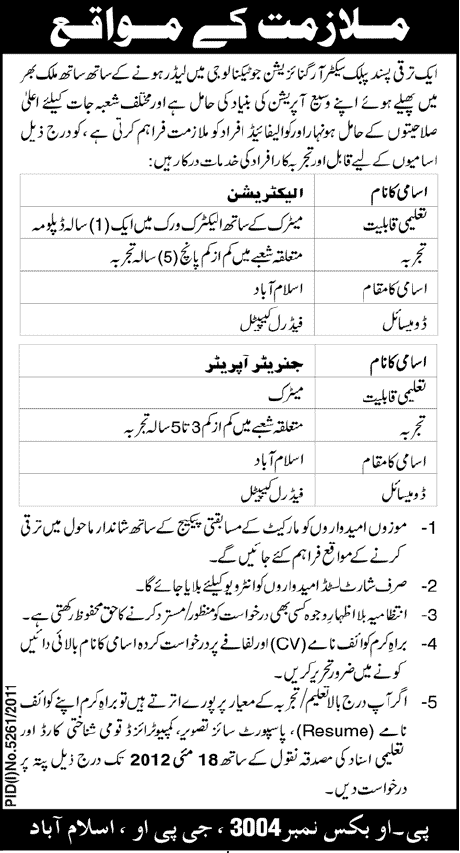 ملازمت کے مواقع
ایک ترقی پسند پبلک سیکٹر آرگنائزیشن جو ٹیکنالوجی میں لیڈر ہونے کے ساتھ ساتھ ملک بھر
میں پھیلے ہوئے اپنے وسیع آپریشن کی بنیاد کی حامل ہے اور مختلف شعبہ جات کیلئے اعلیٰ
صلاحیتوں کے حامل ہونہار اور کوالیفائیڈ افراد کو ملازمت فراہم کرتی ہے، کو درج ذیل
اسامیوں کے لیے قابل اور تجربہ کار افراد کی خدمات درکار ہیں:
اسامی کا نام الیکٹریشن
تعلیمی قابلیت میٹرک کے ساتھ الیکٹرک ورک میں ایک (1) سالہ ڈپلومہ
تجربہ متعلقہ شعبے میں کم از کم پانچ (5) سالہ تجربہ
اسامی کا مقام اسلام آباد
ڈومیسائل فیڈرل کیپیٹل
اسامی کا نام جنریٹر آپریٹر
تعلیمی قابلیت میٹرک
تجربہ متعلقہ شعبے میں کم از کم 3 تا 5 سالہ تجربہ
اسامی کا مقام اسلام آباد
ڈومیسائل فیڈرل کیپیٹل
1- موزوں امیدواروں کو مارکیٹ کے مسابقتی پیکیج کے ساتھ شاندار ماحول میں ترقی
کرنے کے مواقع فراہم کئے جائیں گے۔
2- صرف شارٹ لسٹڈ امیدواروں کو انٹرویو کیلئے بلایا جائے گا۔
3- انتظامیہ بلا اظہار وجوہ کسی بھی درخواست کو منظور/مسترد کرنے کا حق محفوظ رکھتی ہے۔
4- براہ کرم کوائف نامے (CV) اور لفافے پر درخواست کردہ اسامی کا نام بالائی دائیں
کونے میں ضرور تحریر کریں۔
5- اگر آپ درج بالا تعلیم/تجربہ کے معیار پر پورے اترتے ہیں تو براہ کرم اپنے کوائف
نامے (Resume)، پاسپورٹ سائز تصویر، کمپیوٹرائزڈ قومی شناختی کارڈ اور
تعلیمی اسناد کی مصدقہ نقول کے ساتھ 18 مئی 2012 تک درج ذیل پتہ پر
درخواست دیں۔
PID(I)No.5261/2011
پی۔او بکس نمبر 3004، جی پی او، اسلام آباد